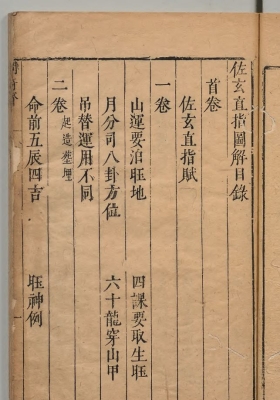 佐玄直指圖解目錄
首卷
佐玄直指賦
一卷
山運要泊旺地　四課要取生旺
月分司八卦方位　六十龍穿山甲
吊替運用不同
二卷 起造塟埋
命前五辰四吉　旺神例